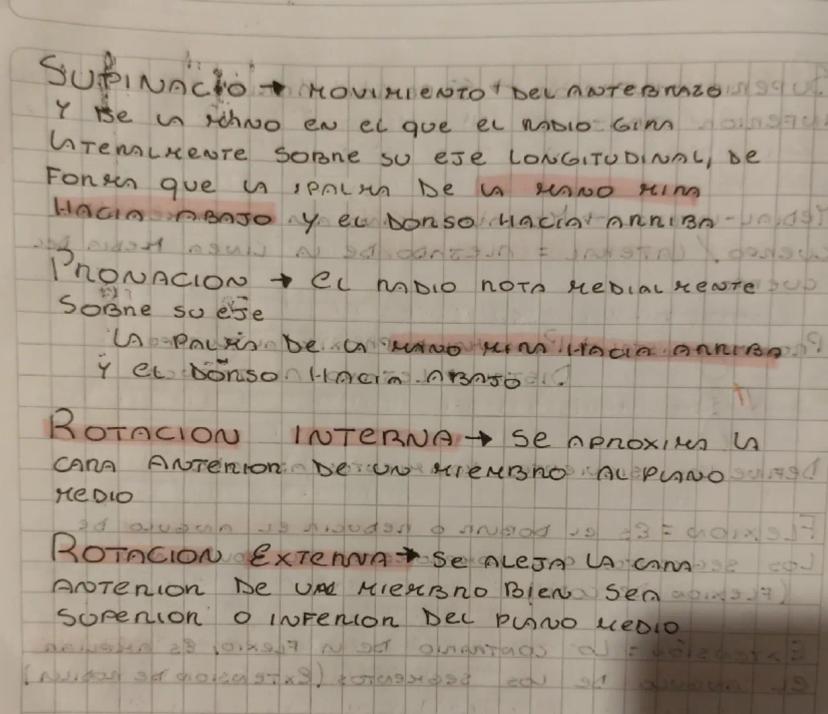 SUPINACIÓ → MOVIMIENTO DEL ANTEBRAZO
Y DE LA MANO EN EL QUE EL RADIO GIRA
LATERALMENTE SOBRE SU EJE LONGITUDINAL, DE
FORMA QUE LA PALMA DE LA MANO MIRA
HACIA ABAJO Y EL DORSO HACIA ARRIBA
PRONACION → EL RADIO ROTA MEDIALMENTE
SOBRE SU EJE
LA PALMA DE LA MANO MIRA HACIA ARRIBA
Y EL DORSO HACIA ABAJO.
ROTACION INTERNA → SE APROXIMA LA
CARA ANTERIOR DE UN MIEMBRO AL PLANO
MEDIO
ROTACION EXTERNA → SE ALEJA LA CARA
ANTERIOR DE UN MIEMBRO BIEN SEA
SUPERIOR O INFERIOR DEL PLANO MEDIO